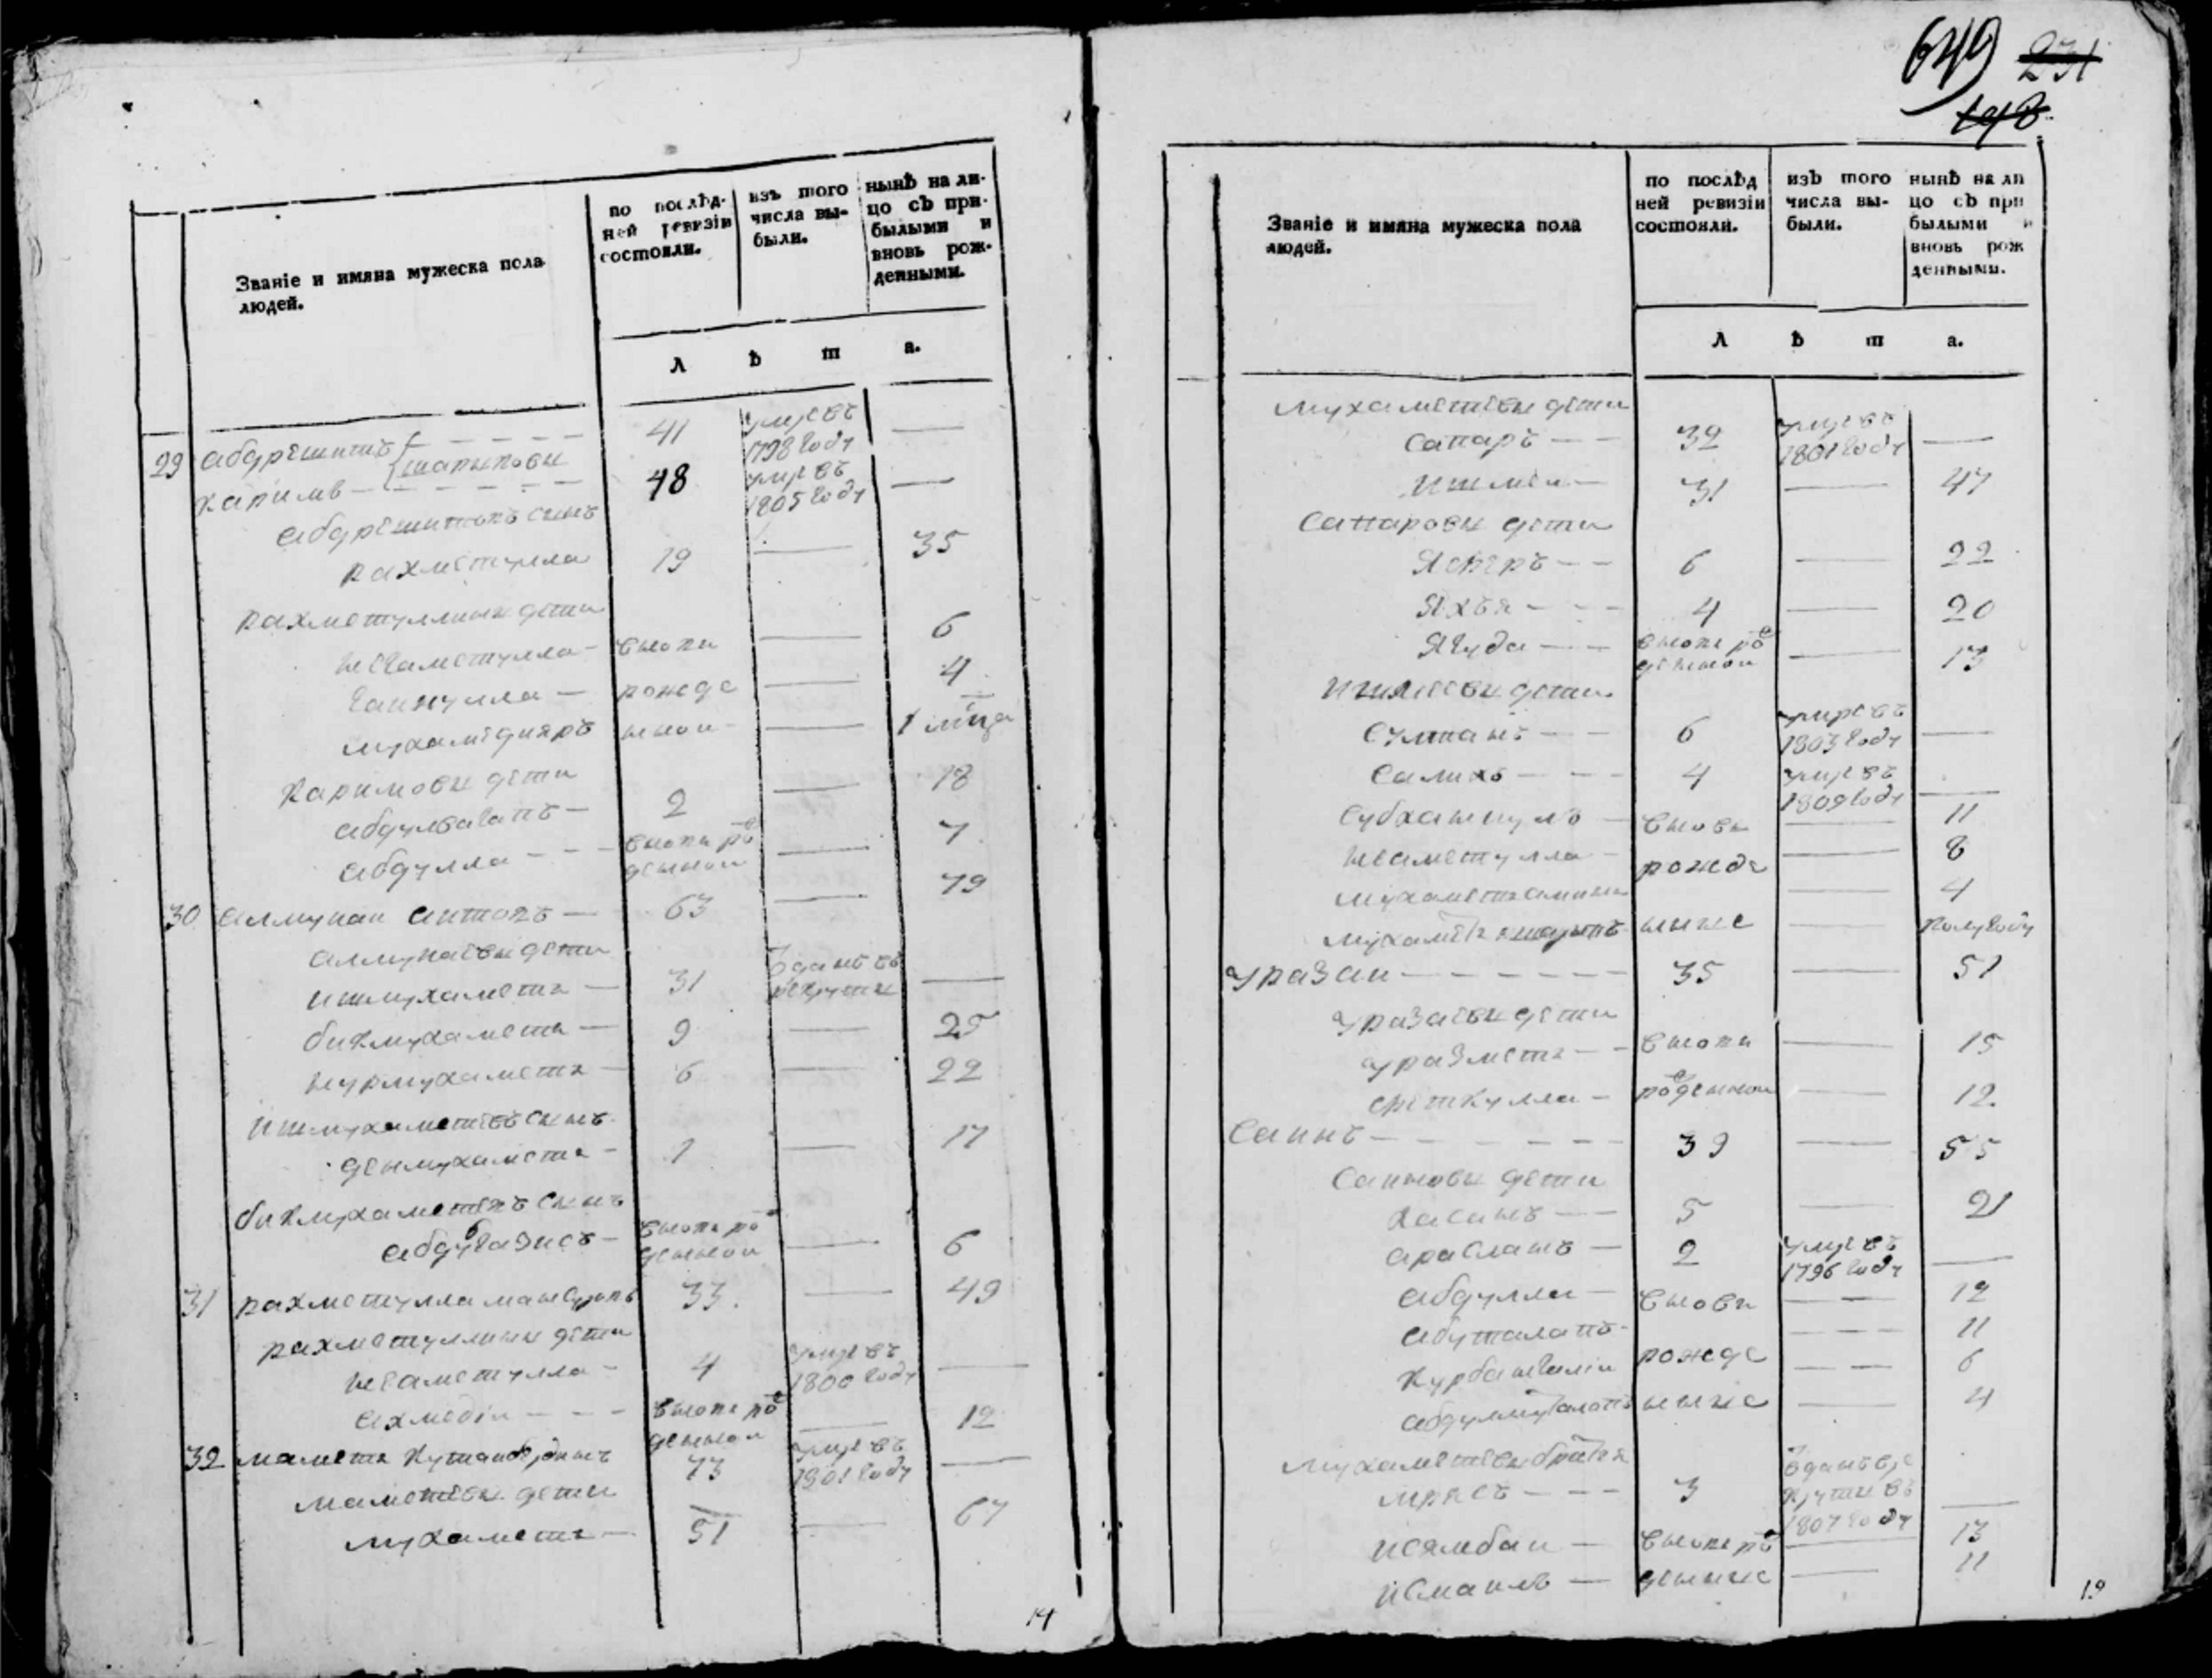 649 231
198
Званіе и имяна мужеска пола людей.
по послѣд-
ней ревизіи
состояли.
изъ того
числа вы-
были.
нынѣ на ли-
цо съ при-
былыми и
вновь рож-
денными.
л ѣ т а.
29 абдрешитъ 41 умре въ 1798 году —
каримъ шарыповы 48 умре въ 1805 году —
абдрешитовъ сынъ
рахметулла 19 — 35
рахметуллины дети
негаметулла вновь — 6
ганнулла рожде — 4
мухамедияръ нной — 1 мца
каримовы дети
абдулвагапъ 2 — 18
абдулла вновь рожденной — 7
30 алмукай аитовъ 63 — 79
алмукаевы дети
ишмухаметь 31 зданъ въ рекруты —
бикмухаметь 9 — 25
нурмухаметь 6 — 22
ишмухаметевъ сынъ
денмухаметь 1 — 17
бикмухаметевъ сынъ
абдулгазисъ вновь рожденной — 6
31 рахметулла мансуровъ 33 — 49
рахметуллины дети
негаметулла 4 умре въ 1800 году —
ахмедѣи вновь рожденной — 12
32 маметь 73 умре въ 1801 году —
маметевы дети
мухаметь 51 — 67
14
Званіе и имяна мужеска пола
людей.
по послѣд
ней ревизіи
состояли.
изъ того
числа вы-
были.
нынѣ на ли
цо съ при
былыми и
вновь рож
денными.
л ѣ т а.
мухаметевы дети
сапаръ 32 умре въ 1801 году —
ишмѣи 31 — 47
сапаровы дети
6 — 22
яхъя 4 — 20
ягуда вновь рожденной — 13
ишмеевы дети
султанъ 6 умре въ 1803 году —
салихъ 4 умре въ 1809 году —
субханкулъ вновь — 11
негаметулла рожде — 8
мухаметьаминь — 4
нные — полугоду
уразаи 35 — 51
уразаевы дети
уразметь вновь — 15
сеиткулла рожденной — 12
саинъ 39 — 55
саиновы дети
хасанъ 5 — 21
арасланъ 2 умре въ 1796 году —
абдулла вновь — 12
абуталапъ — 11
курбангалѣи рожде — 6
абдулмуталапъ нные — 4
мухаметевы братья
3 зданъ въ рекруты въ 1807 году —
исянбаи вновь ро — 13
исмаилъ жденные — 11
19